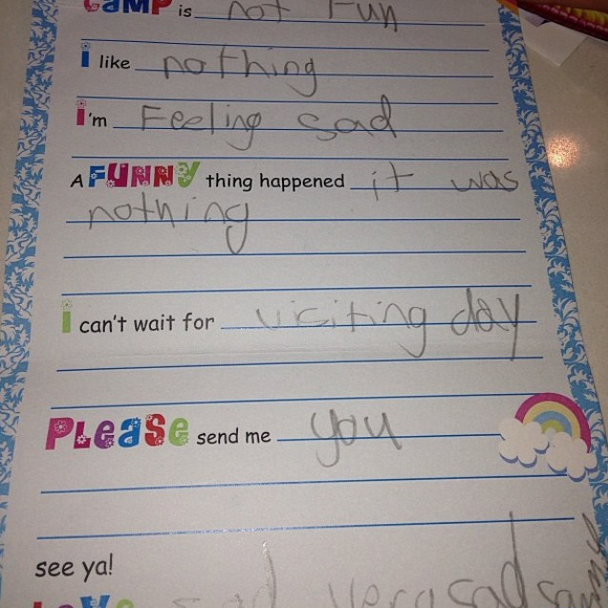 CaMP is not Fun
i like nothing
i'm Feeling sad
A FUNNY thing happened it was
nothing
i can't wait for visiting day
PLeaSe send me you
see ya!
Love sad very sad